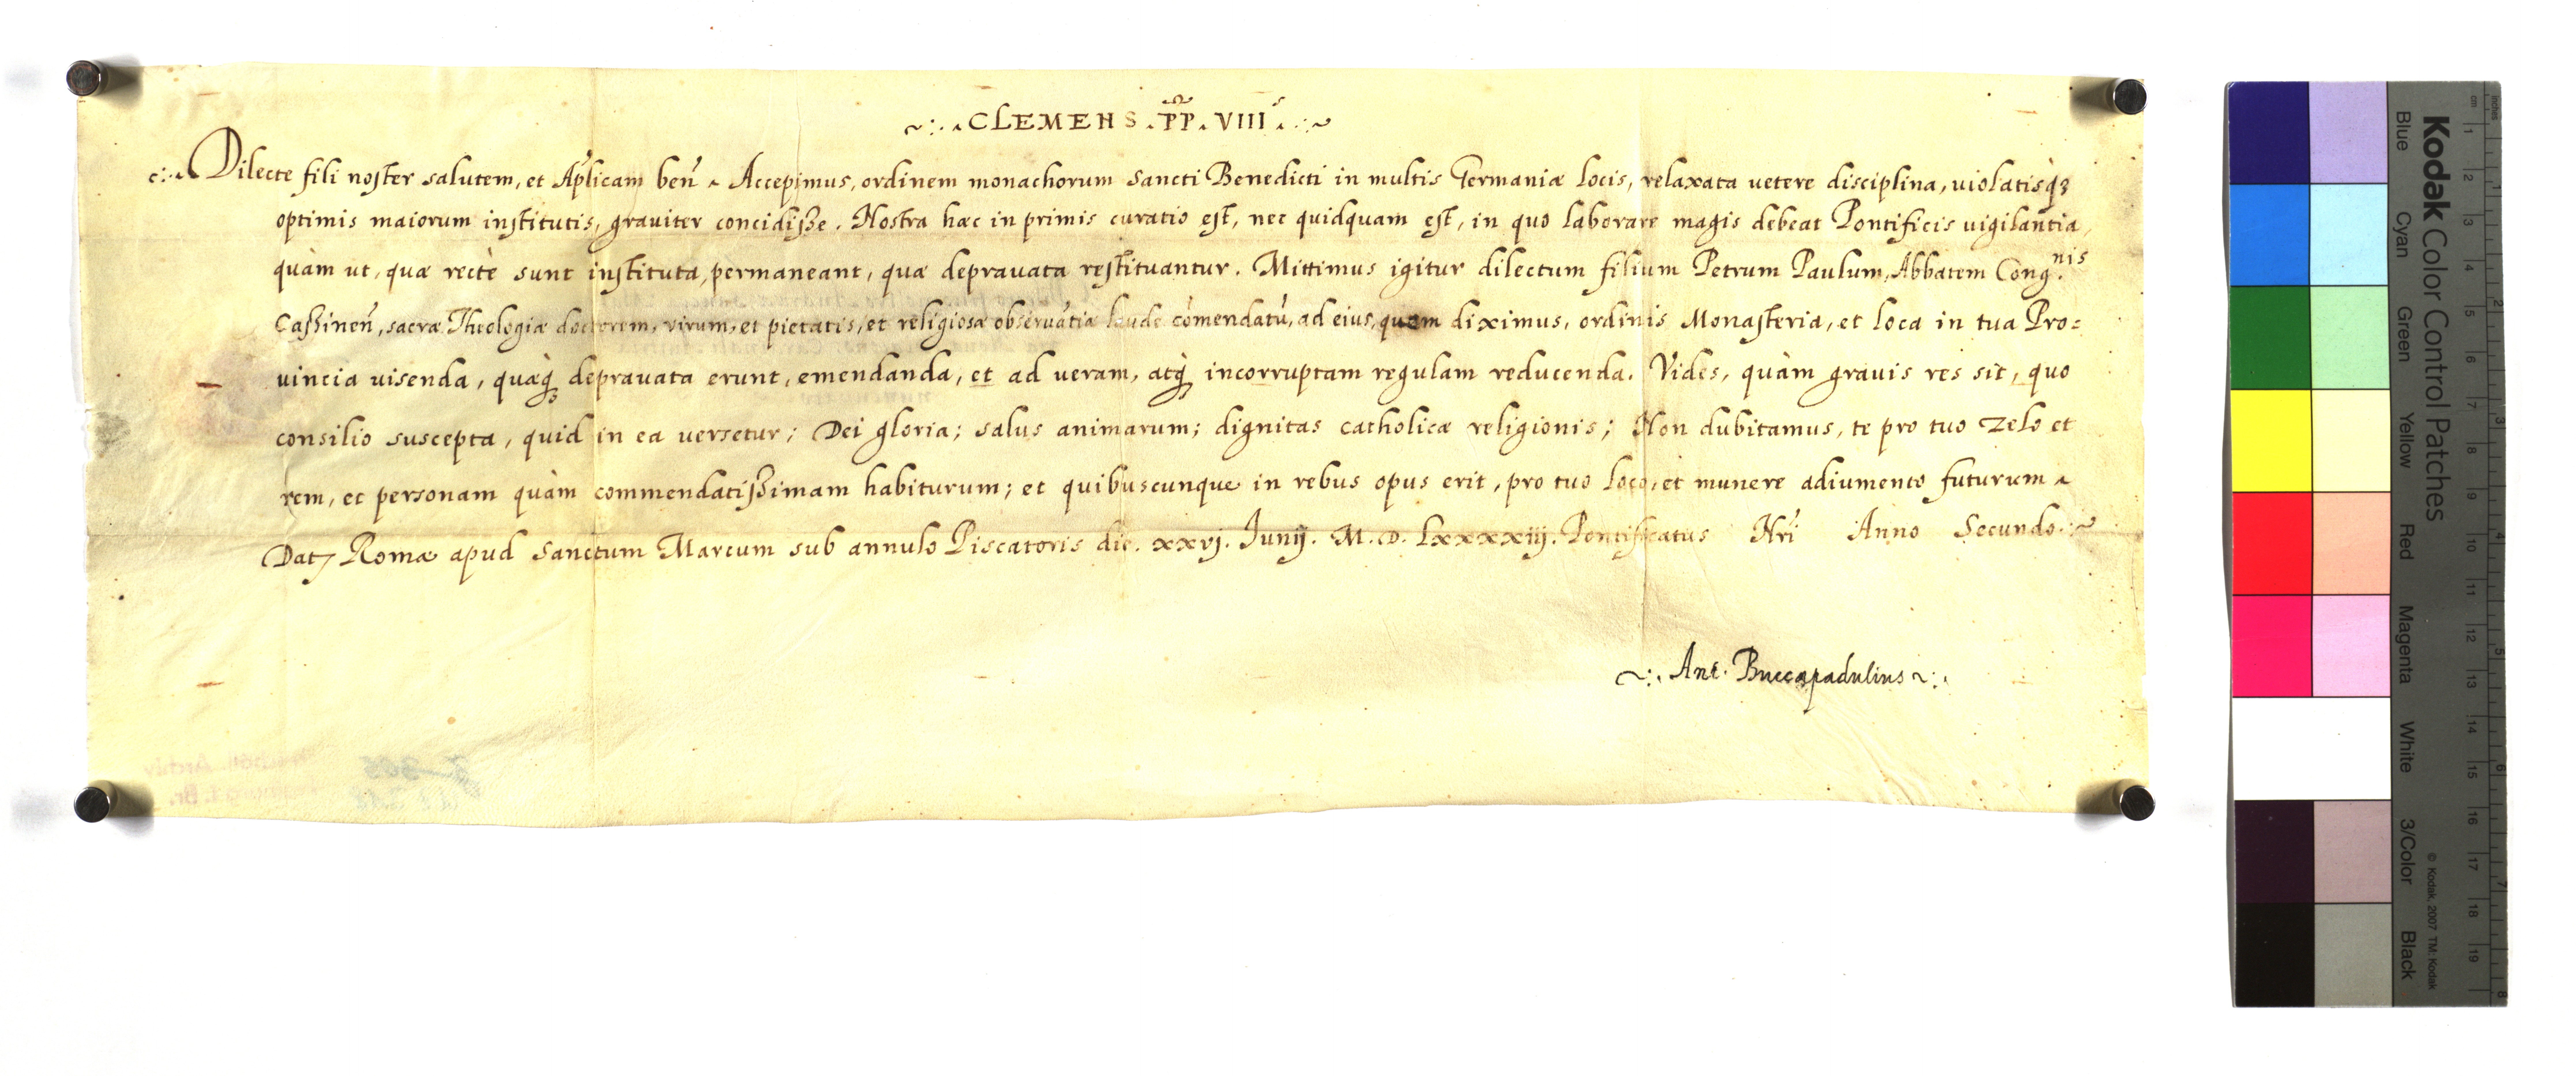 ~:. CLEMENS . PP. VIII . .:~
Dilecte fili noster salutem, et Ap̃licam ben̄ Accepimus, ordinem monachorum Sancti Benedicti in multis Germaniæ locis, relaxata vetere disciplina, violatisq́ꝫ
optimis maiorum institutis, graviter concidisse. Nostra hæc in primis curatio est, nec quidquam est, in quo laborare magis debeat Pontificis vigilantia,
quàm ut, quæ rectè sunt instituta, permaneant, quæ depravata restituantur. Mittimus igitur dilectum filium Petrum Paulum, Abbatem Cong.nis
Cassinen̄, sacræ Theologiæ doctorem, virum, et pietatis, et religiosæ observãtiæ laude cõmendatũ, ad eius, quem diximus, ordinis Monasteria, et loca in tua Pro=
vincia visenda, quæq́ꝫ depravata erunt, emendanda, et ad veram, atq́ꝫ incorruptam regulam reducenda. Vides, quàm gravis res sit, quo
consilio suscepta, quid in ea versetur; Dei gloria; salus animarum; dignitas catholicæ religionis; Non dubitamus, te pro tuo zelo et
rem, et personam quàm commendatissimam habiturum; et quibuscunque in rebus opus erit, pro tuo loco, et munere adiumento futurum
Datꝫ Romæ apud Sanctum Marcum sub annulo Piscatoris die. xxvj. Junij. M. D. Lxxxxiij. Pontificatus Nrĩ Anno Secundo. :~
~:. Ant. Buccapadulius ~:.
Kodak Color Control Patches
Blue Cyan Green Yellow Red Magenta White 3/Color Black
© Kodak, 2007 TM: Kodak
cm 1 2 3 4 5 6 7 8 9 10 11 12 13 14 15 16 17 18 19
inches 1 2 3 4 5 6 7 8